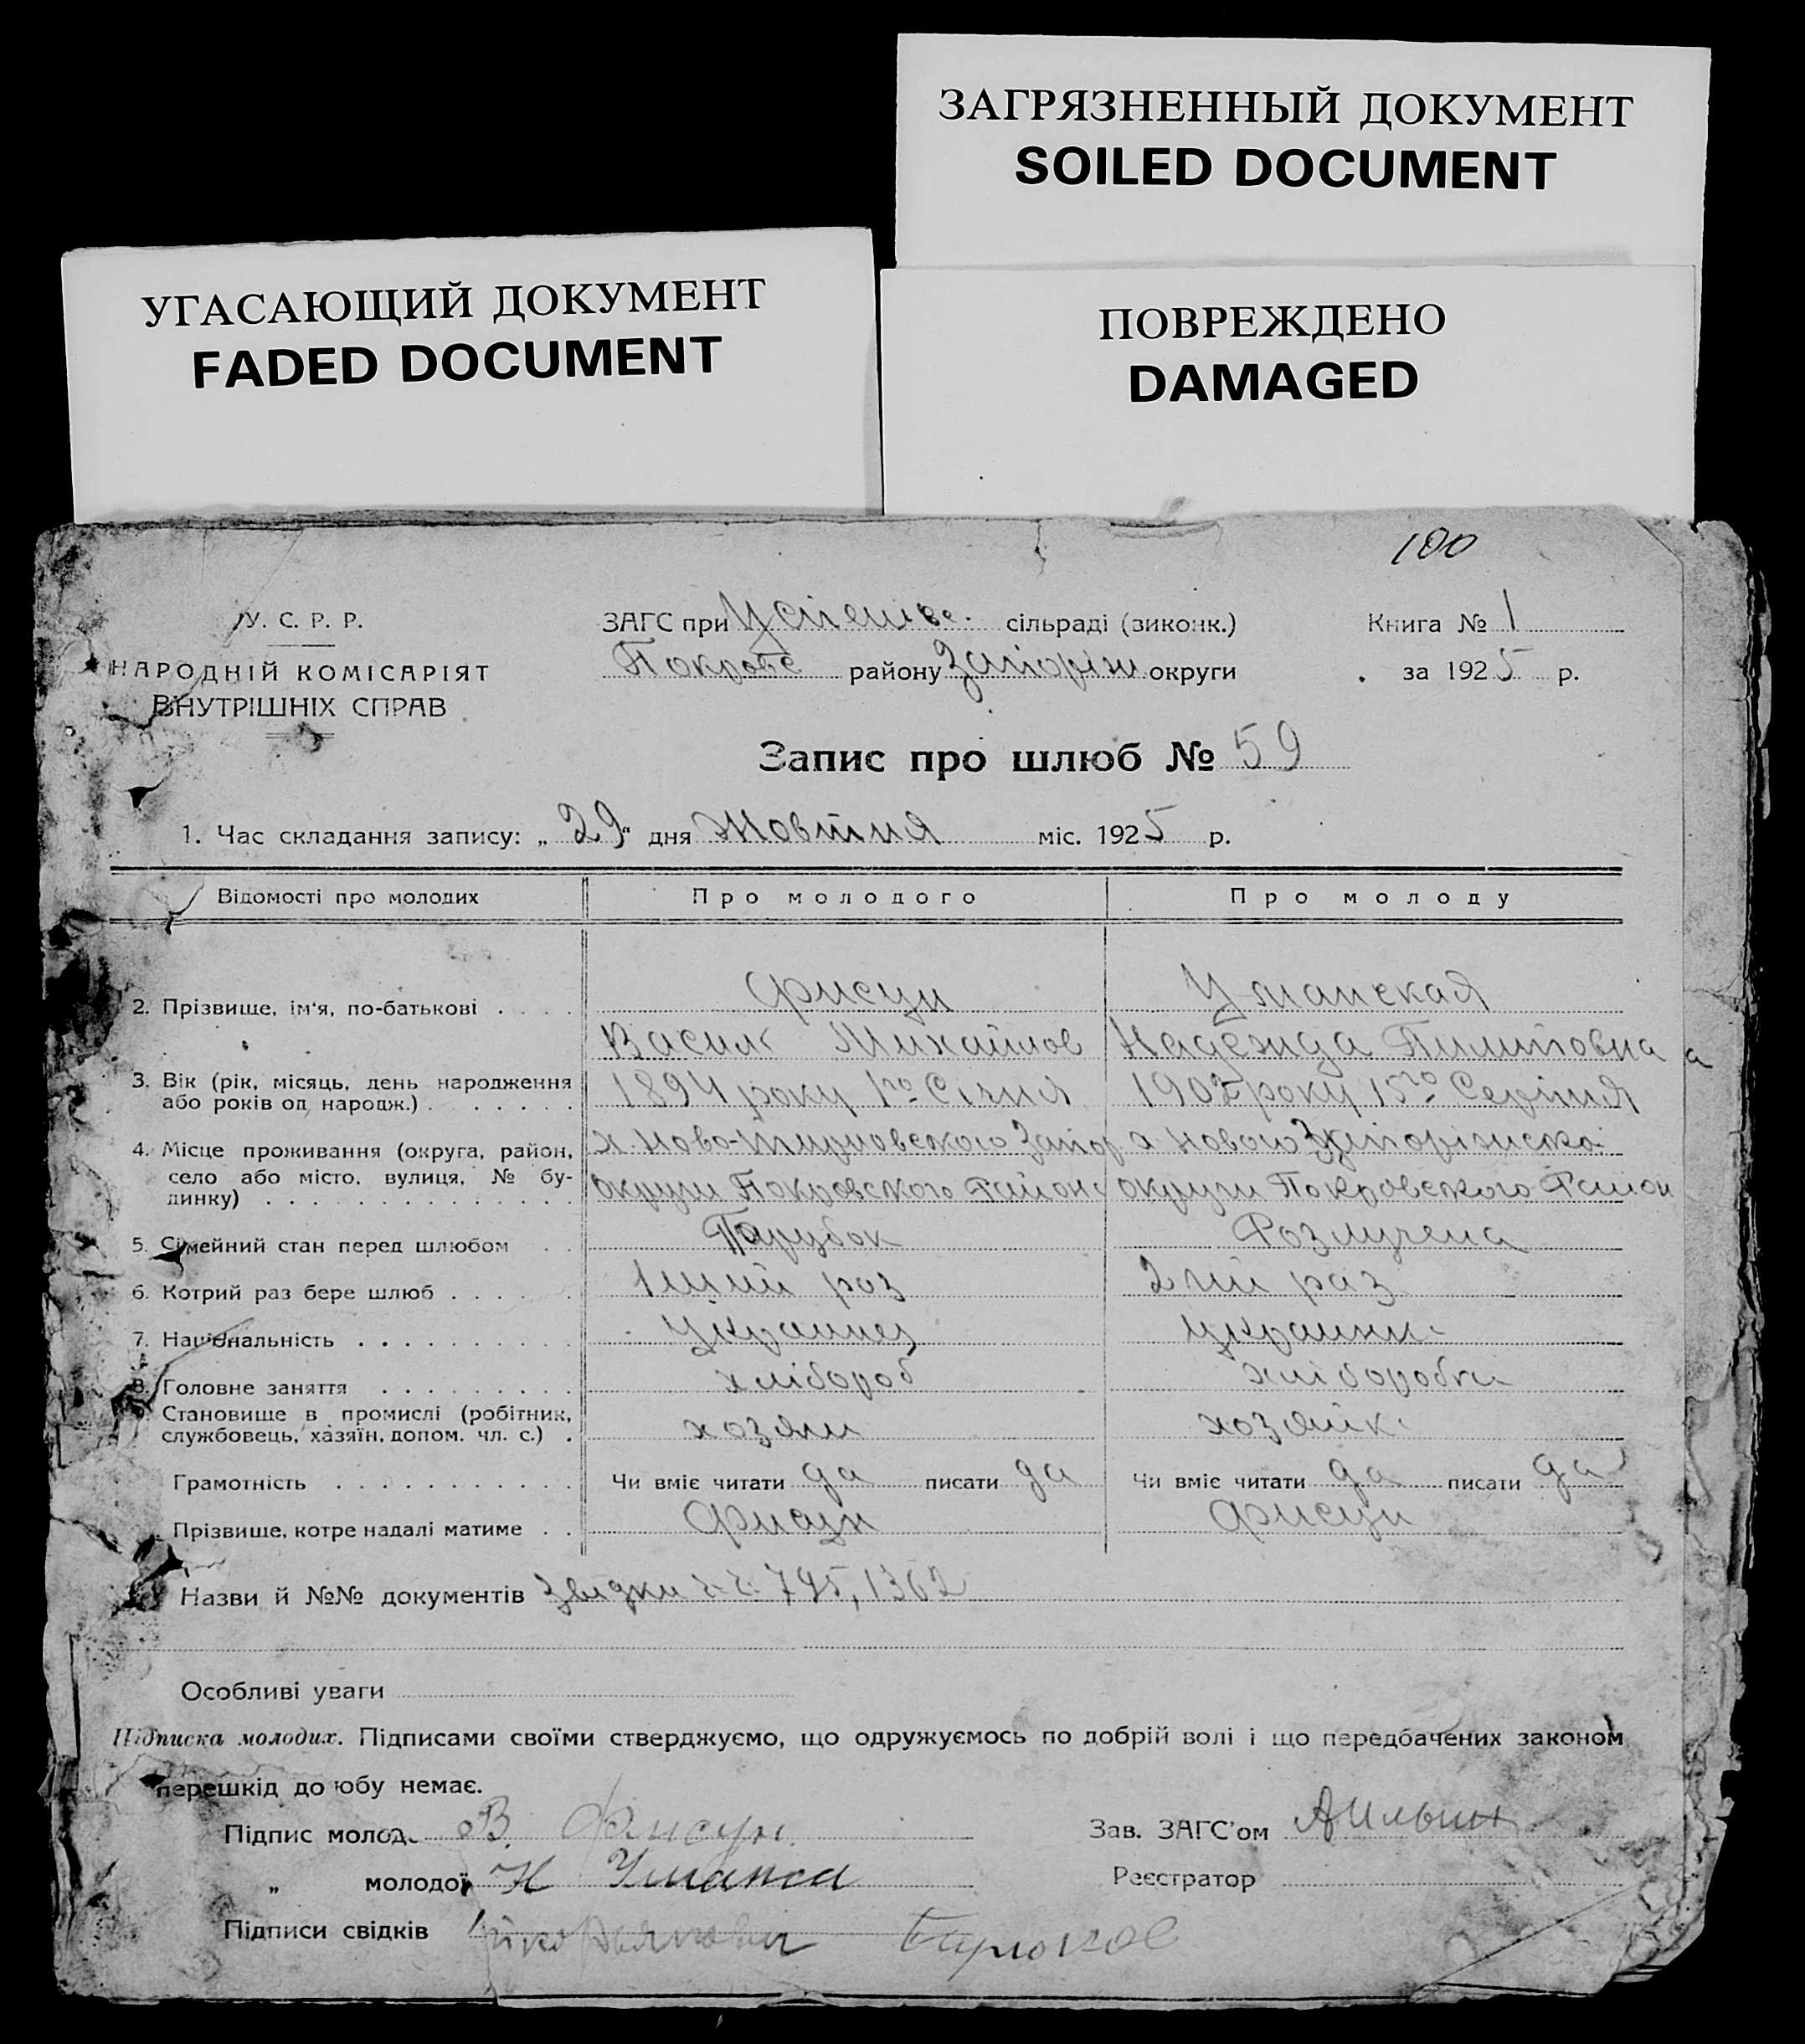 ЗАГРЯЗНЕННЫЙ ДОКУМЕНТ
SOILED DOCUMENT
УГАСАЮЩИЙ ДОКУМЕНТ
FADED DOCUMENT
ПОВРЕЖДЕНО
DAMAGED
100
У. С. Р. Р.
НАРОДНІЙ КОМІСАРІЯТ
ВНУТРІШНІХ СПРАВ
ЗАГС при Успенівс. сільраді (виконк.)
Покровс району Запоріж округи
Книга № 1
за 1925 р.
Запис про шлюб № 59
1. Час складання запису: „ 29 “ дня Жовтня міс. 1925 р.
Відомості про молодих Про молодого Про молоду
2. Прізвище, ім‘я, по-батькові Фисун Уманская
Васил Михайлов Надежда Пилиповна
3. Вік (рік, місяць, день народження 1894 року 1го Січня 1902 року 15го Серпня
або років од народж.)
4. Місце проживання (округа, район, х. Ново- Запор х Запоріжско
село або місто, вулиця, № бу- округи Покровского Район округи Покровского Район
динку)
5. Сімейний стан перед шлюбом Парубок Розлучена
6. Котрий раз бере шлюб 1ший раз 2гий раз
7. Національність Українец Українк
8. Головне заняття хлібороб хліборобка
9. Становище в промислі (робітник, хозяин хозяйк
службовець, хазяїн, допом. чл. с.)
Грамотність Чи вміє читати да писати да Чи вміє читати да писати да
Прізвище, котре надалі матиме Фисун Фисун
Назви й №№ документів 795, 1362
Особливі уваги
Підписка молодих. Підписами своїми стверджуємо, що одружуємось по добрій волі і що передбачених законом
перешкід до юбу немає.
Підпис молод. В. Фисун.
Зав. ЗАГС'ом АИльин
„ молодої Н Уманса
Реєстратор
Підписи свідків Бирюков